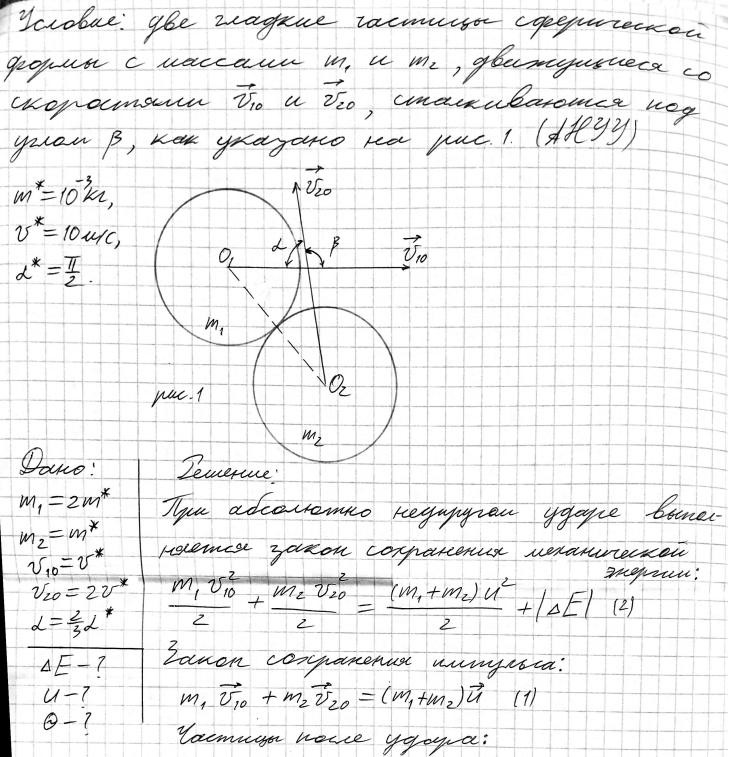 Условие: две гладкие частицы сферической
формы с массами m₁ и m₂, движущиеся со
скоростями v⃗₁₀ и v⃗₂₀, сталкиваются под
углом β, как указано на рис. 1. (АНУУ)
m* = 10⁻³ кг,
v* = 10 м/с,
α* = π/2.
v⃗₂₀
α
β
O₁
v⃗₁₀
m₁
O₂
рис. 1
m₂
Дано:
m₁ = 2m*
m₂ = m*
v₁₀ = v*
v₂₀ = 2v*
α = 2/3 α*
ΔE - ?
u - ?
Θ - ?
Решение:
При абсолютно неупругом ударе выпол-
няется закон сохранения механической
энергии:
m₁v₁₀²/2 + m₂v₂₀²/2 = (m₁+m₂)u²/2 + |ΔE| (2)
Закон сохранения импульса:
m₁v⃗₁₀ + m₂v⃗₂₀ = (m₁+m₂)u⃗ (1)
Частицы после удара: